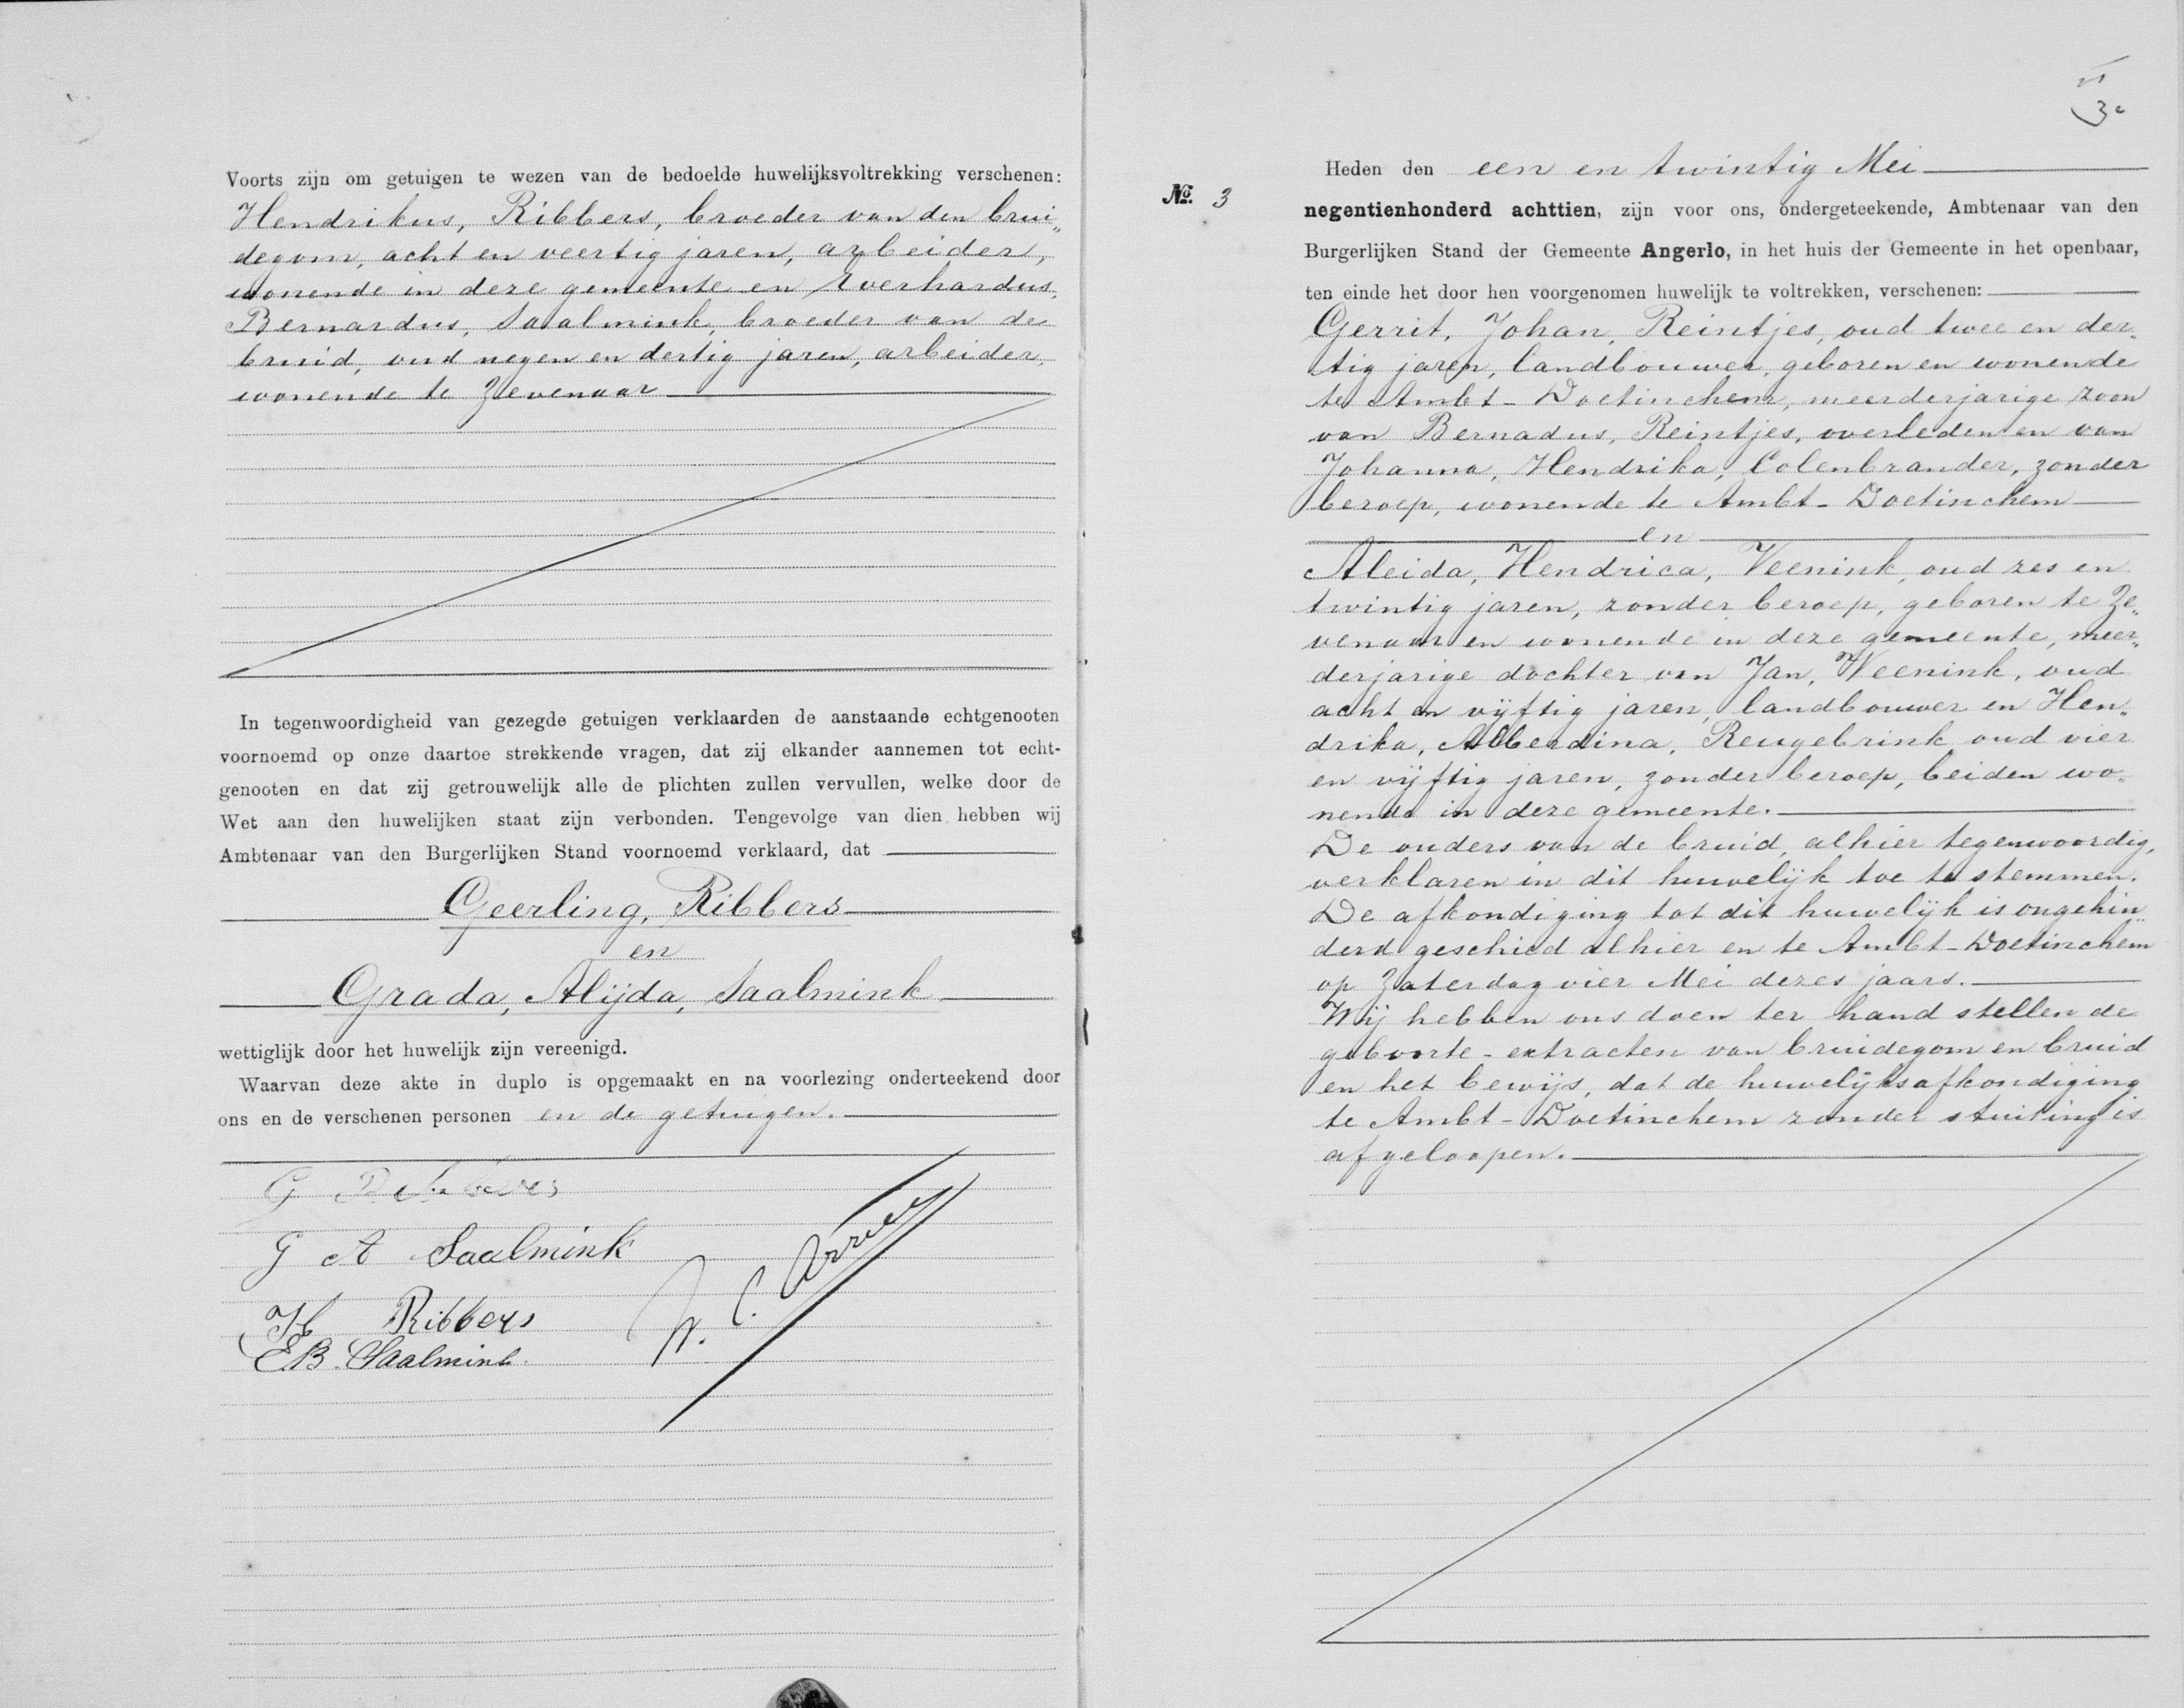 Voorts zijn om getuigen te wezen van de bedoelde huwelijksvoltrekking verschenen:
Hendrikus, Ribbers, broeder van den brui„
degom, acht en veertig jaren, arbeider,
wonende in deze gemeente en Everhardus,
Bernardus, Saalmink, broeder van de
bruid, oud negen en dertig jaren, arbeider,
wonende te Zevenaar
In tegenwoordigheid van gezegde getuigen verklaarden de aanstaande echtgenooten
voornoemd op onze daartoe strekkende vragen, dat zij elkander aannemen tot echt-
genooten en dat zij getrouwelijk alle de plichten zullen vervullen, welke door de
Wet aan den huwelijken staat zijn verbonden. Tengevolge van dien hebben wij
Ambtenaar van den Burgerlijken Stand voornoemd verklaard, dat
Geerling, Ribbers
en
Grada, Alijda, Saalmink
wettiglijk door het huwelijk zijn vereenigd.
Waarvan deze akte in duplo is opgemaakt en na voorlezing onderteekend door
ons en de verschenen personen en de getuigen.
G Ribbers
G A Saalmink
H Ribbers
EB. Saalmink.
No. 3
Heden den een en twintig Mei
negentienhonderd achttien, zijn voor ons, ondergeteekende, Ambtenaar van den
Burgerlijken Stand der Gemeente Angerlo, in het huis der Gemeente in het openbaar,
ten einde het door hen voorgenomen huwelijk te voltrekken, verschenen:
Gerrit, Johan, Reintjes, oud twee en der„
tig jaren, landbouwer, geboren en wonende
te Ambt-Doetinchem, meerderjarige zoon
van Bernadus, Reintjes, overleden en van
Johanna, Hendrika, Colenbrander, zonder
beroep, wonende te Ambt-Doetinchem
en
Aleida, Hendrica, Veenink, oud zes en
twintig jaren, zonder beroep, geboren te Ze„
venaar en wonende in deze gemeente, meer„
derjarige dochter van Jan, Veenink, oud
acht en vijftig jaren, landbouwer en Hen„
drika, Alberdina, Reugebrink oud vier
en vijftig jaren, zonder beroep, beiden wo„
nende in deze gemeente.
De ouders van de bruid, alhier tegenwoordig,
verklaren in dit huwelijk toe te stemmen.
De afkondiging tot dit huwelijk is ongehin„
derd geschied alhier en te Ambt-Doetinchem
op Zaterdag vier Mei dezes jaars.
Wij hebben ons doen ter hand stellen de
geboorte-extracten van bruidegom en bruid
en het bewijs, dat de huwelijksafkondiging
te Ambt-Doetinchem zonder stuiting is
afgeloopen.